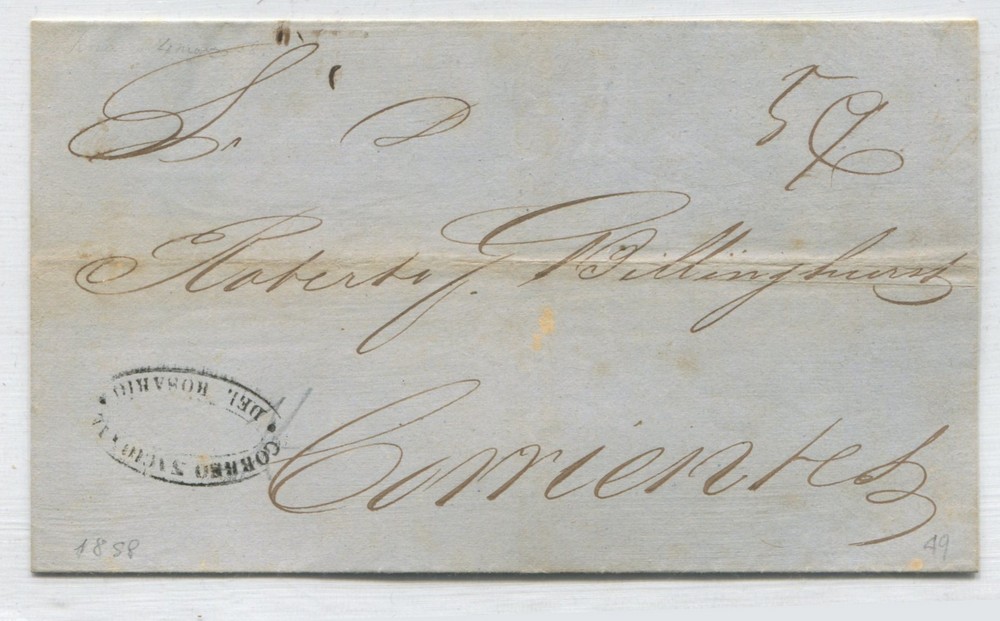 Sr. D
59
Roberto J. Billinghurst
CORREO NACIONAL
DEL ROSARIO
Corrientes
1858
49